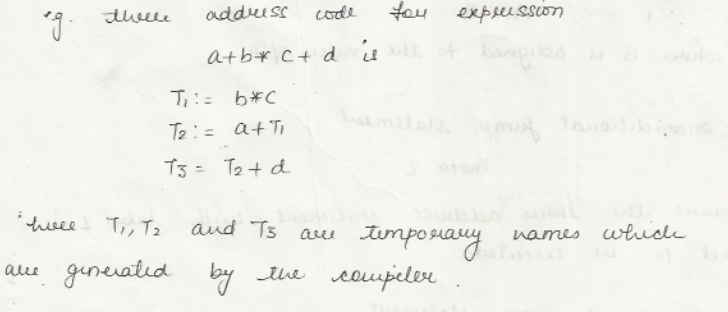 eg. three address code for expression
a+b*c+d is
T1:= b*c
T2:= a+T1
T3= T2+d
here T1, T2 and T3 are temporary names which
are generated by the compiler.